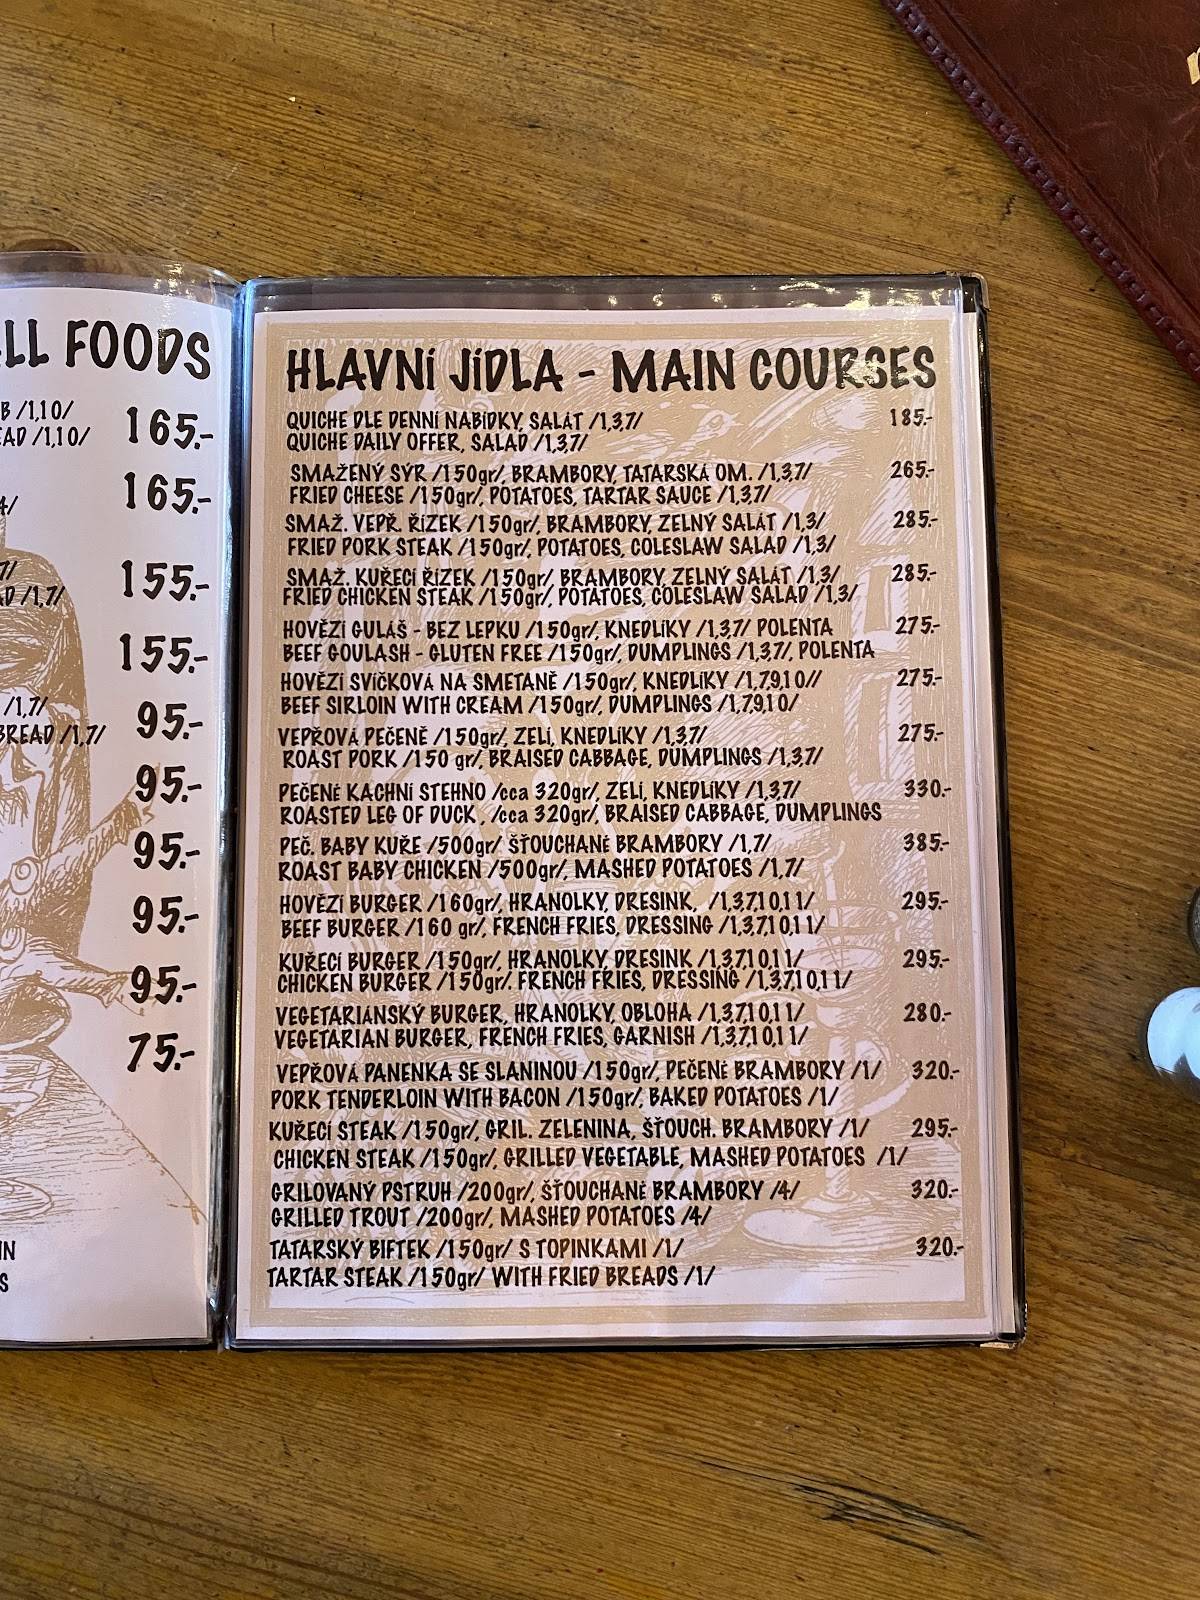 LL FOODS
B /1,10/
EAD /1,10/ 165.-
165.-
4/
7/
AD /1,7/ 155.-
155.-
/1,7/
BREAD /1,7/ 95.-
95.-
95.-
95.-
95.-
75.-
IN
S
HLAVNÍ JÍDLA - MAIN COURSES
QUICHE DLE DENNÍ NABÍDKY, SALÁT /1,3,7/ 185.-
QUICHE DAILY OFFER, SALAD /1,3,7/
SMAŽENÝ SÝR /150gr/, BRAMBORY, TATARSKÁ OM. /1,3,7/ 265.-
FRIED CHEESE /150gr/, POTATOES, TARTAR SAUCE /1,3,7/
SMAŽ. VEPŘ. ŘÍZEK /150gr/, BRAMBORY, ZELNÝ SALÁT /1,3/ 285.-
FRIED PORK STEAK /150gr/, POTATOES, COLESLAW SALAD /1,3/
SMAŽ. KUŘECÍ ŘÍZEK /150gr/, BRAMBORY, ZELNÝ SALÁT /1,3/ 285.-
FRIED CHICKEN STEAK /150gr/, POTATOES, COLESLAW SALAD /1,3/
HOVĚZÍ GULÁŠ - BEZ LEPKU /150gr/, KNEDLÍKY /1,3,7/ POLENTA 275.-
BEEF GOULASH - GLUTEN FREE /150gr/, DUMPLINGS /1,3,7/, POLENTA
HOVĚZÍ SVÍČKOVÁ NA SMETANĚ /150gr/, KNEDLÍKY /1,7,9,10// 275.-
BEEF SIRLOIN WITH CREAM /150gr/, DUMPLINGS /1,7,9,10/
VEPŘOVÁ PEČENĚ /150gr/, ZELÍ, KNEDLÍKY /1,3,7/ 275.-
ROAST PORK /150 gr/, BRAISED CABBAGE, DUMPLINGS /1,3,7/
PEČENÉ KACHNÍ STEHNO /cca 320gr/, ZELÍ, KNEDLÍKY /1,3,7/ 330.-
ROASTED LEG OF DUCK , /cca 320gr/, BRAISED CABBAGE, DUMPLINGS
PEČ. BABY KUŘE /500gr/ ŠŤOUCHANÉ BRAMBORY /1,7/ 385.-
ROAST BABY CHICKEN /500gr/, MASHED POTATOES /1,7/
HOVĚZÍ BURGER /160gr/, HRANOLKY, DRESINK, /1,3,7,10,11/ 295.-
BEEF BURGER /160 gr/, FRENCH FRIES, DRESSING /1,3,7,10,11/
KUŘECÍ BURGER /150gr/, HRANOLKY, DRESINK /1,3,7,10,11/ 295.-
CHICKEN BURGER /150gr/, FRENCH FRIES, DRESSING /1,3,7,10,11/
VEGETARIÁNSKÝ BURGER, HRANOLKY, OBLOHA /1,3,7,10,11/ 280.-
VEGETARIAN BURGER, FRENCH FRIES, GARNISH /1,3,7,10,11/
VEPŘOVÁ PANENKA SE SLANINOU /150gr/, PEČENÉ BRAMBORY /1/ 320.-
PORK TENDERLOIN WITH BACON /150gr/, BAKED POTATOES /1/
KUŘECÍ STEAK /150gr/, GRIL. ZELENINA, ŠŤOUCH. BRAMBORY /1/ 295.-
CHICKEN STEAK /150gr/, GRILLED VEGETABLE, MASHED POTATOES /1/
GRILOVANÝ PSTRUH /200gr/, ŠŤOUCHANÉ BRAMBORY /4/ 320.-
GRILLED TROUT /200gr/, MASHED POTATOES /4/
TATARSKÝ BIFTEK /150gr/ S TOPINKAMI /1/ 320.-
TARTAR STEAK /150gr/ WITH FRIED BREADS /1/